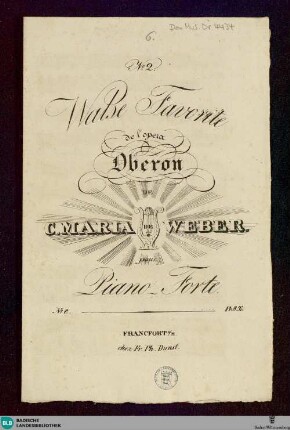 6.
Don Mus. Dr. 4437
№ 2.
Walse Favorite
de l'opera
Oberon
DE
C. MARIA DE WEBER.
pour
Piano-Forte
FRANCFORT s/m
chez Fr. Ph. Dunst.
BLB BADISCHE
LANDESBIBLIOTHEK
Baden-Württemberg